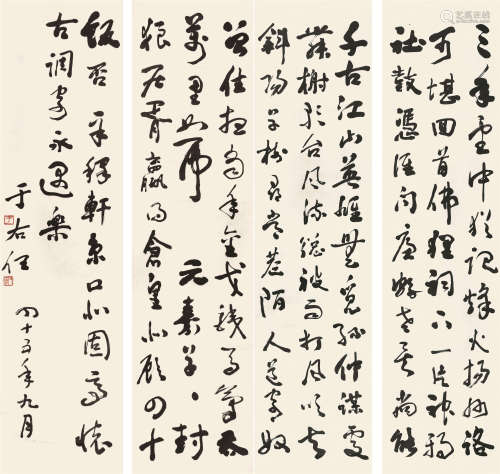 三年望中猶記烽火揚州路
可堪回首佛狸祠下一片神鴉
社鼓憑誰問廉頗老矣尚能
千古江山英雄無覓孫仲謀處
舞榭歌台風流總被雨打風吹去
斜陽草樹尋常巷陌人道寄奴
曾住想當年金戈鐵馬氣吞
萬里如虎 元嘉草草封
狼居胥贏得倉皇北顧四十
飯否 辛稼軒京口北固亭懷
古調寄永遇樂
于右任
四十五年九月